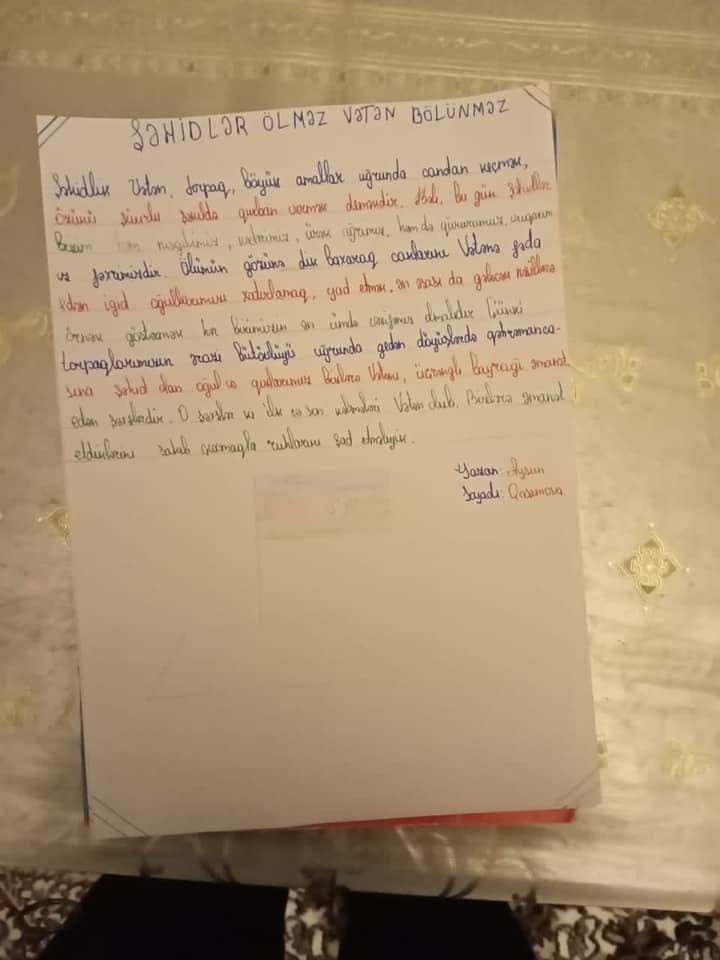 ŞƏHİDLƏR ÖLMƏZ VƏTƏN BÖLÜNMƏZ
Şəhidlik Vətən, torpaq, böyük amallar uğrunda candan keçmək,
Özünü şüurlu şəkildə qurban vermək deməkdir. Bəli, bu gün Şəhidlər
Bizim həm nisgilimiz, kədrimiz, ürək ağrımız, həm də qürurumuz, vüqarımız
və fəxrimizdir. Ölümün gözünə dik baxaraq canlarını Vətənə fəda
edən igid oğullarımızı xatırlamaq, yad etmək, ən əsası da gələcək nəsillərə
örnək göstərmək hər birimizin ən ümdə vəzifəmiz olmalıdır. Çünki
torpaqlarımızın ərazi bütövlüyü uğrunda gedən döyüşlərdə qəhrəmanca-
sına şəhid olan oğul və qızlarımız bizlərə Vətəni, üçrəngli bayrağı əmanət
edən şəxslərdir. O şəxslər ki ilk və son kəlmələri Vətən olub. Bizlərə əmanət
etdiklərini sahib çıxmaqla ruhlarını şad etməliyik.
Yazan: Aysun
Soyadı: Qasımova